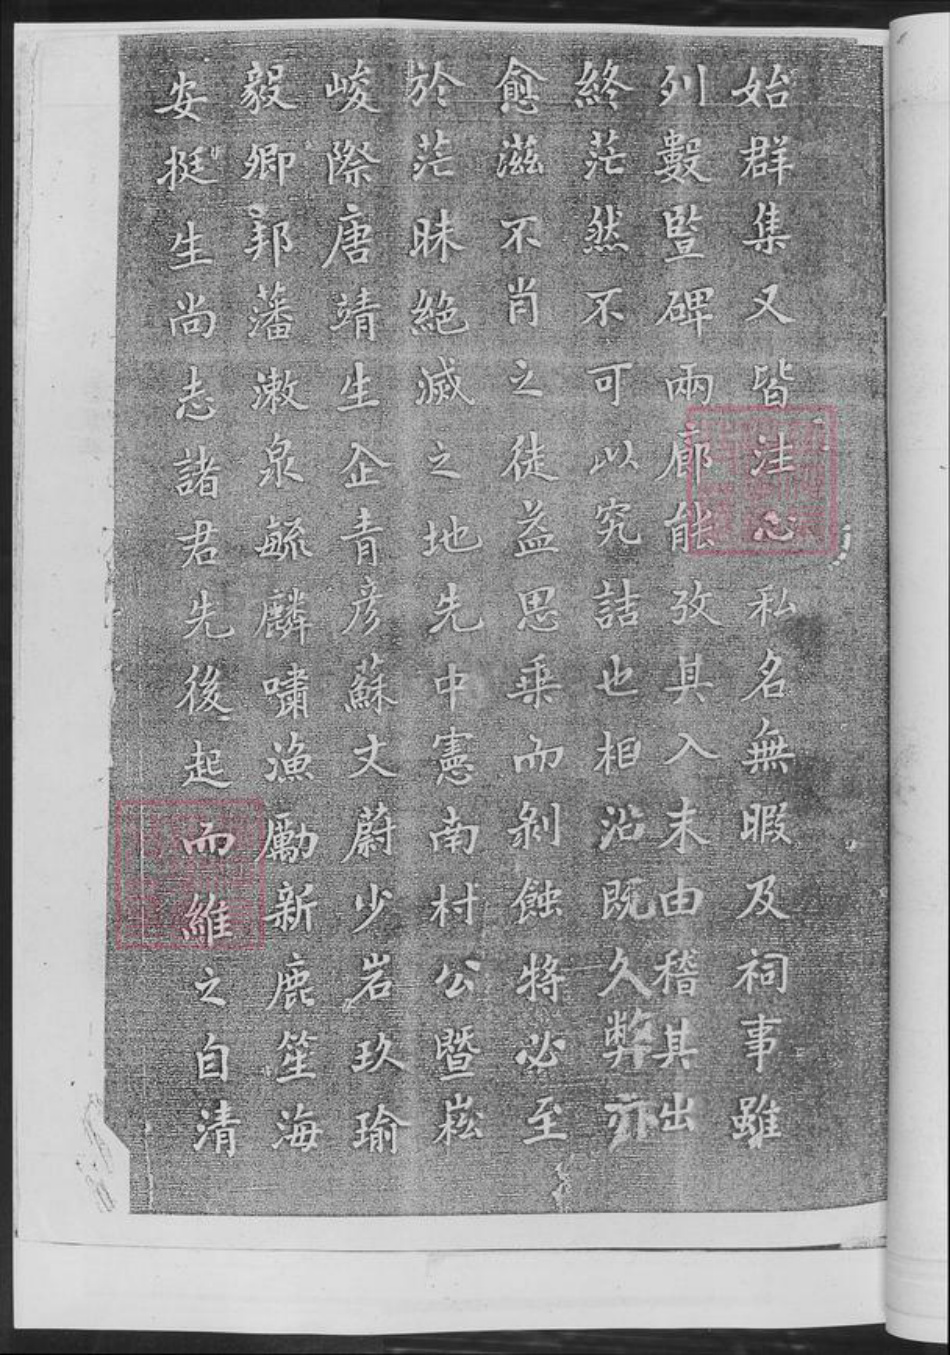 始群集又皆注心私名無暇及祠事雖
列數竪碑兩廊能攷其入末由稽其出
終茫然不可以究詰也相沿既久弊亦
愈滋不肖之徒益思乗而剝蝕將必至
於茫昧絕滅之地先中憲南村公暨崧
峻際唐靖生企青彥蘇丈蔚少岩玖瑜
毅卿邦藩漱泉毓麟嘯漁勵新鹿笙海
安挺生尚志諸君先後起而維之自清